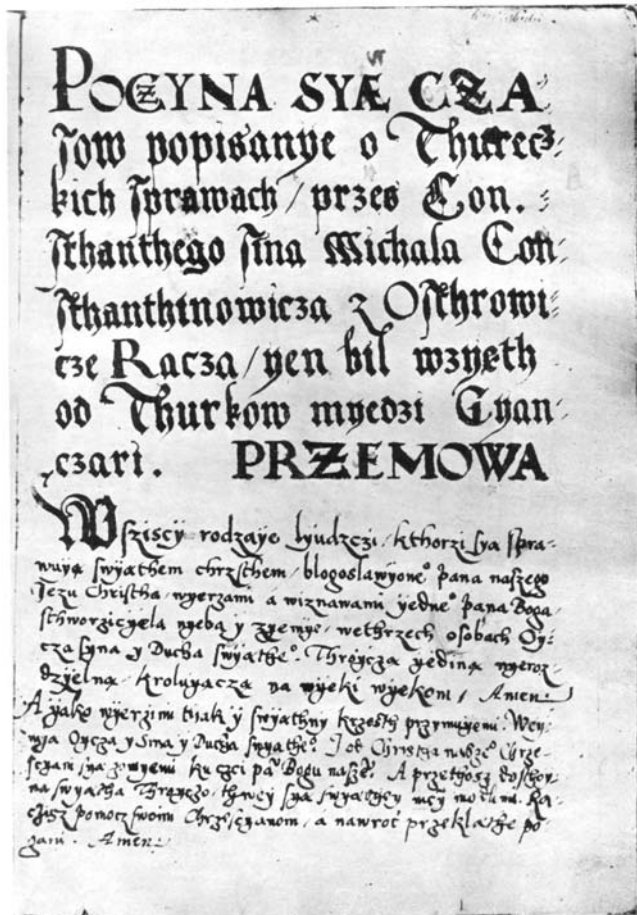 POCZYNA SYÆ CZA
sow popisanye o Thurecz-
kich sprawach / przes Con.
sthanthego sina Michala Con-
sthanthinowicza z Osthrowi-
cze Racza / yen bil wzyeth
od Thurkow myedzi Gyan-
czari. PRZEMOWA
Wszisci rodzaye lyudzczi / kthorzi sya spra-
wuyą swyathem chrzsthem / blogoslawyone° pana naszego
Jezu Christha / wyerzami a wiznawami yedne° pana Boga
sthworziciela nyeba y zyemye / wethrzech osobach Oy-
cza syna y Ducha swyathe°. Throycza yediną nyeroz-
dzyelną / kroluyacza na wyeki wyekom / Amen
A yako wyerzimi thak y swyathny krzesth przymuyemi Wey-
Oycza y Sina y Ducha swyathe° J od Christha nasze° Chrze-
sczyani sya zowyemi ku czci pa° Bogu nasze°. A przethosz
swyatha Throyczo
pomocz swoim Chrzesczyanom, a nawroć przeklathe po-
gani. Amen